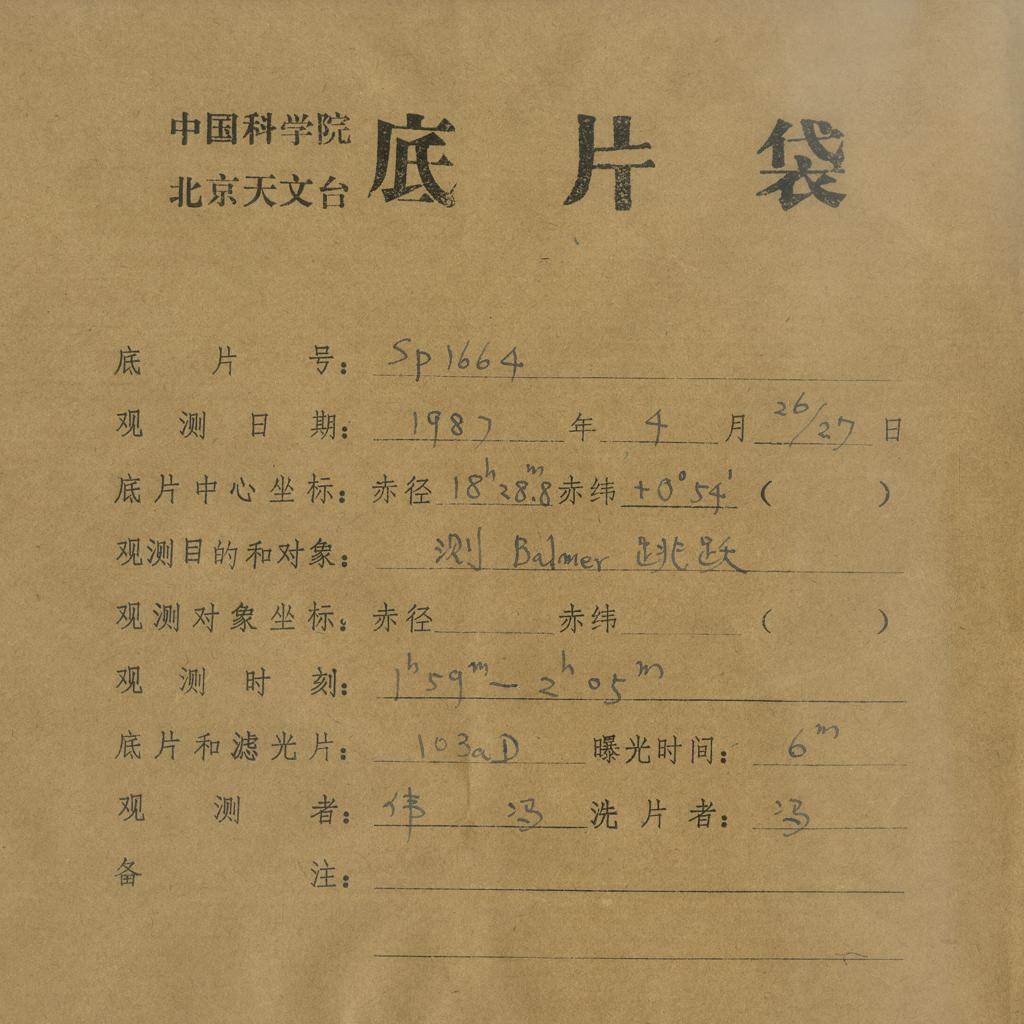 中国科学院
北京天文台 底片袋
底片号： Sp1664
观测日期： 1987 年 4 月 26/27 日
底片中心坐标： 赤径 18ʰ28ᵐ.8 赤纬 +0°54′ （ ）
观测目的和对象： 测 Balmer 跳跃
观测对象坐标： 赤径 赤纬 （ ）
观测时刻： 1ʰ59ᵐ — 2ʰ05ᵐ
底片和滤光片： 103aD 曝光时间： 6ᵐ
观测者： 伟 冯 洗片者： 冯
备注：